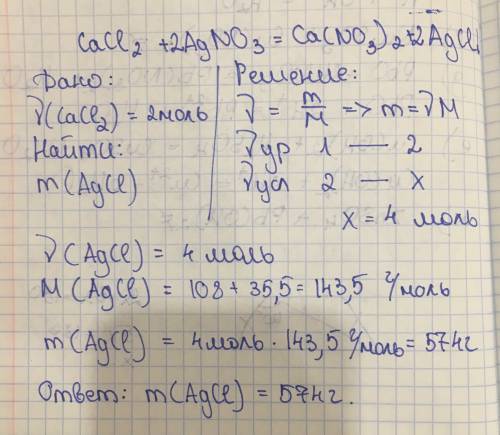 CaCl2 + 2AgNO3 = Ca(NO3)2 + 2AgCl↓
Дано:
ν(CaCl2) = 2моль
Найти:
m(AgCl)
Решение:
ν = m/M => m = νM
νур 1 — 2
νусл 2 — x
x = 4 моль
ν(AgCl) = 4 моль
M(AgCl) = 108 + 35,5 = 143,5 г/моль
m(AgCl) = 4моль · 143,5 г/моль = 574г
Ответ: m(AgCl) = 574г.